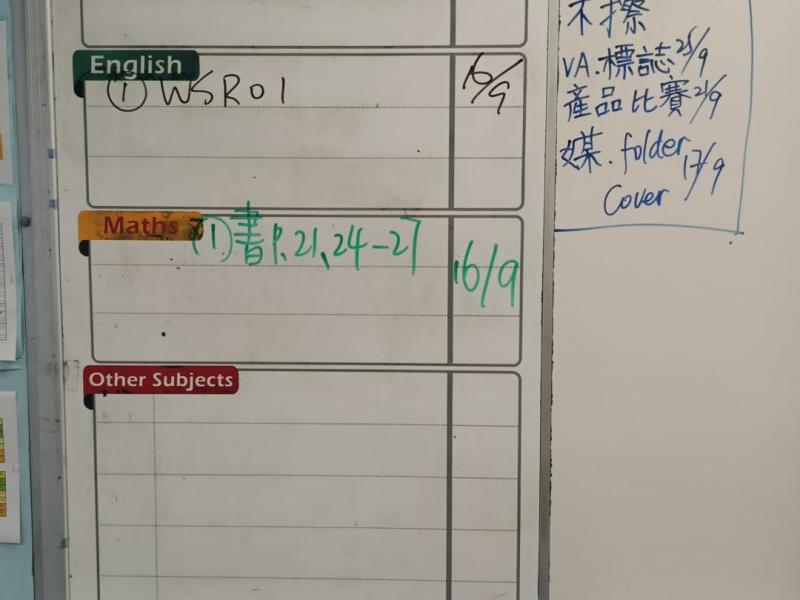 English
① WSR01 16/9
Maths
① 書 P.21、24-27 16/9
Other Subjects
不擦
VA.標誌 25/9
產品比賽 2/9
媒.folder 17/9
Cover